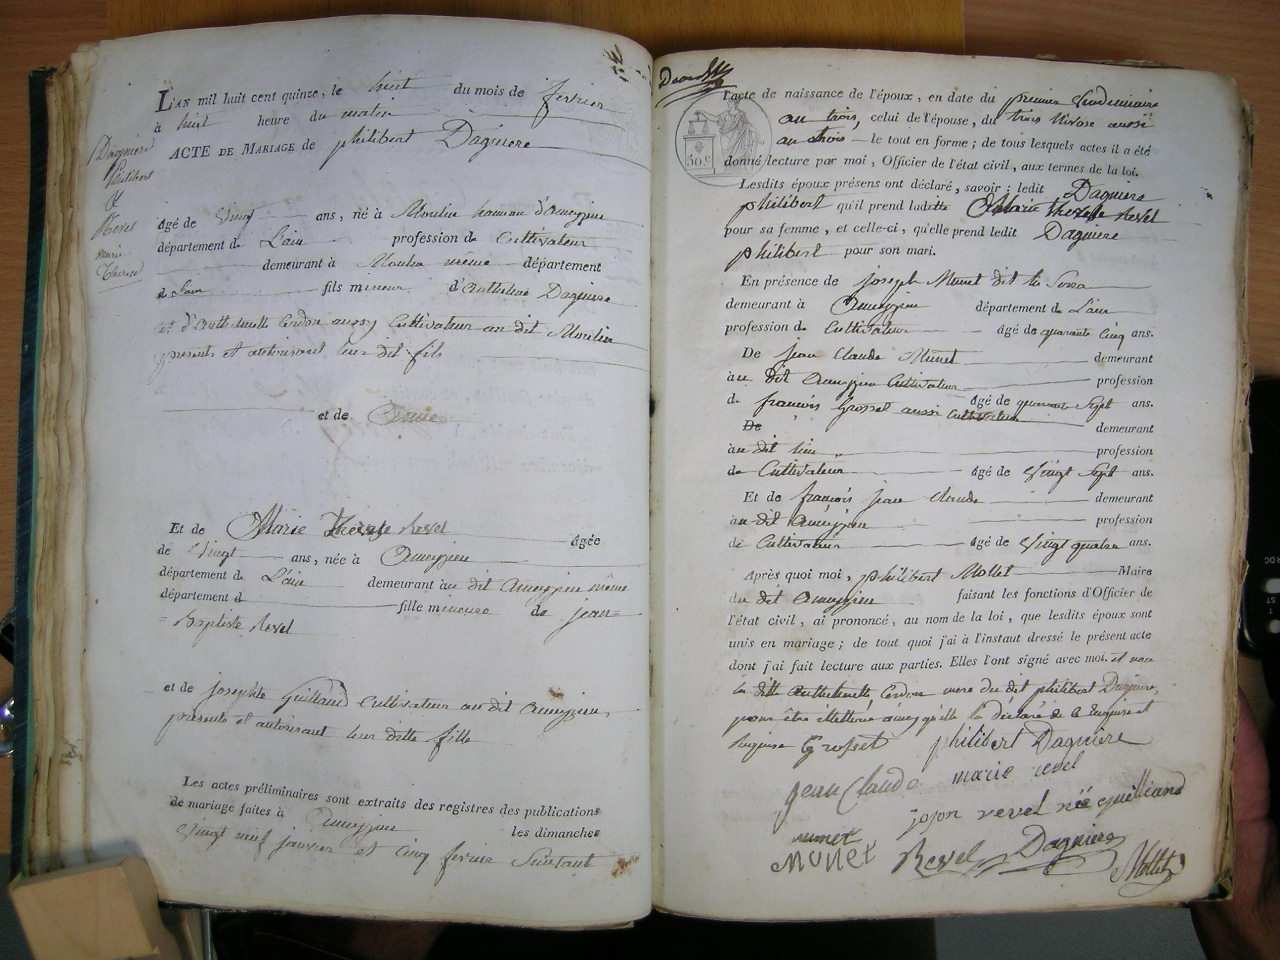 Dagniere
Philibert
&
Revel
marie
Therese
L'AN mil huit cent quinze, le huit du mois de fevrier
à huit heure du matin
ACTE DE MARIAGE de philibert Dagniere
âgé de Vingt ans, né à Moulin hameau d'Ameyzieu
département de L'ain profession de Cultivateur
demeurant à Moulin même département
de L'ain fils mineur d'Anthelme Dagniere
et d'Anthelmette Cerdon aussy Cultivateur au dit Moulin
presents et autorisant leur dit fils
et de
Et de Marie Therese Revel âgée
de Vingt ans, née à Ameyzieu
département de L'ain demeurant au dit Ameyzieu même
département d fille mineure de jean=
=Baptiste Revel
et de josephte Guilland Cultivateur au dit Ameyzieu,
presents et autorisant leur ditte fille
Les actes préliminaires sont extraits des registres des publications
de mariage faites à Ameyzieu les dimanches
Vingt neuf janvier et Cinq fevrier Suivant
30.c
l'acte de naissance de l'époux, en date du premier Vendemiaire
an trois, celui de l'épouse, du trois Nivose aussi
an trois le tout en forme; de tous lesquels actes il a été
donné lecture par moi, Officier de l'état civil, aux termes de la loi.
Lesdits époux présens ont déclaré, savoir; ledit Dagniere
philibert qu'il prend ladette Marie therese Revel
pour sa femme, et celle-ci, qu'elle prend ledit Dagniere
philibert pour son mari.
En présence de joseph Munet dit
demeurant à Ameyzieu département de L'ain
profession de Cultivateur âgé de quarante Cinq ans.
De jean Claude Munet demeurant
au dit Ameyzieu Cultivateur profession
d âgé de quarante Sept ans.
De françois Grosset aussi Cultivateur demeurant
au dit lieu profession
de Cultivateur âgé de Vingt Sept ans.
Et de françois jean Claude demeurant
au dit Ameyzieu profession
de Cultivateur âgé de Vingt quatre ans.
Après quoi moi, philibert Mollet Maire
du dit Ameyzieu faisant les fonctions d'Officier de
l'état civil, ai prononcé, au nom de la loi, que lesdits époux sont
unis en mariage; de tout quoi j'ai à l'instant dressé le présent acte
dont j'ai fait lecture aux parties. Elles l'ont signé avec moi. et non
la ditte Anthelmette Cerdon mere du dit philibert Dagniere,
pour être illettree ainsy qu'elle l'a déclaré de ce Enquise et
Requise Grosset philibert Dagniere
jean Claude marie revel
munet joson revel née guilliand
MUNET Revel Dagniere Mollet